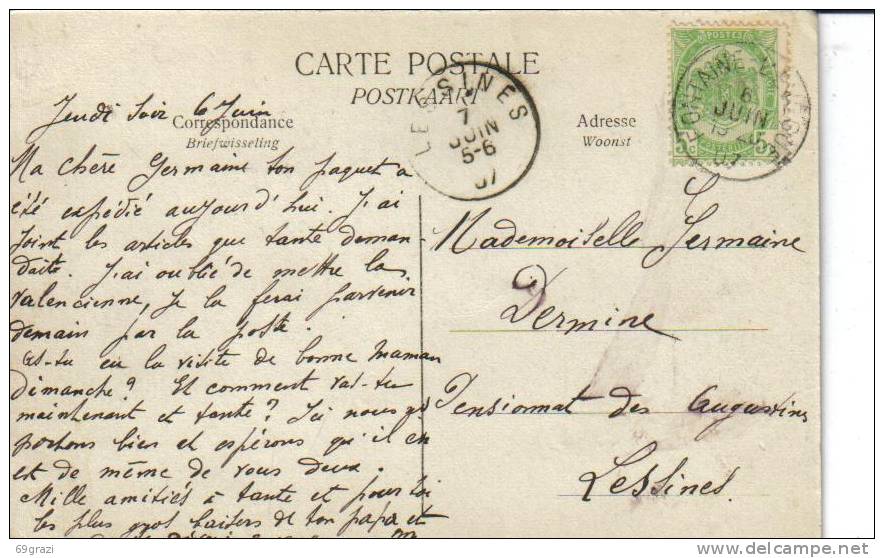 CARTE POSTALE
POSTKAART
Correspondance
Briefwisseling
Adresse
Woonst
Jeudi soir 6 Juin
Ma chère Germaine ton paquet a
été expédié aujourd'hui. J'ai
joint les articles que tante deman-
daite. J'ai oublié de mettre la
valencienne, je la ferai parvenir
demain par la poste.
Es-tu eu la visite de bonne maman
dimanche? Et comment vas-tu
maintenant et tante? Ici nous
portons bien et espérons qu'il en
est de même de vous deux.
Mille amitiés à tante et pour toi
les plus gros baisers de ton papa et
Mademoiselle Germaine
Dermine
Pensionnat des Augustines
Lessines.
LESSINES
7
JUIN
5-6
07
POSTES
5c
FONTAINE-L'
6
JUIN
07
69grazi
www.delcampe.net